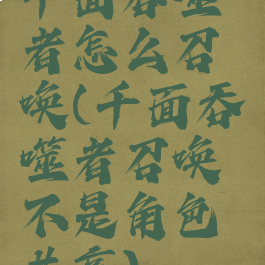 千面吞噬
者怎么召
唤(千面吞
噬者召唤
不是角色
共鸣)